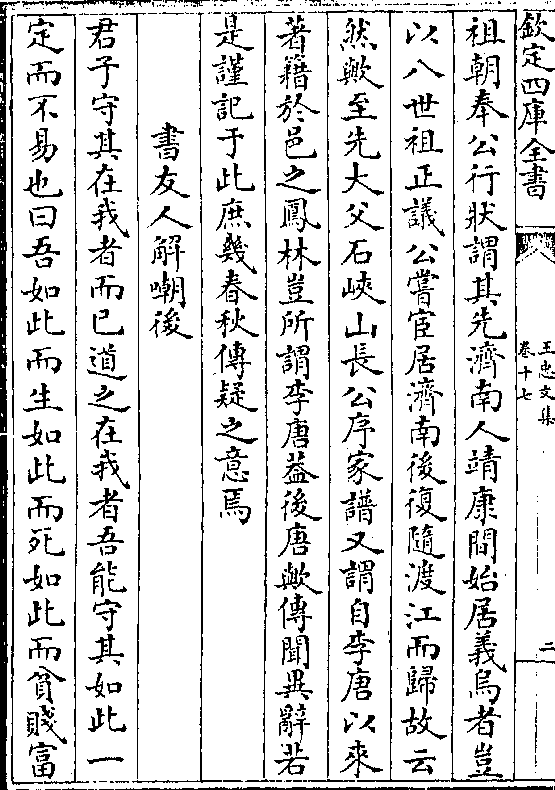 欽定四庫全書
王忠文集
卷十七
二
祖朝奉公行狀謂其先濟南人靖康間始居義烏者豈
以八世祖正議公嘗宦居濟南後復隨渡江而歸故云
然歟至先大父石峽山長公序家譜又謂自李唐以來
著籍於邑之鳳林豈所謂李唐葢後唐歟傳聞異辭若
是謹記于此庶幾春秋傳疑之意焉
書友人解嘲後
君子守其在我者而已道之在我者吾能守其如此一
定而不易也曰吾如此而生如此而死如此而貧賤富